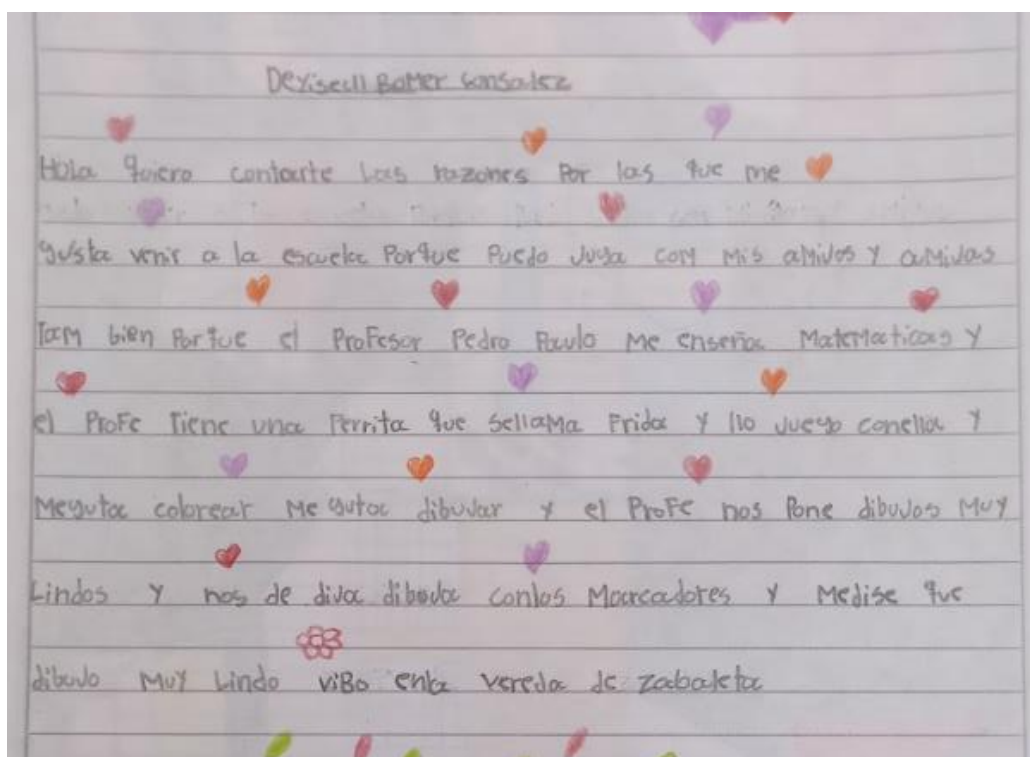 Deyisell Bomer Gonsalez
Hola quiero contarte Las razones Por las que me
gusta venir a la escuela Porque Puedo Juga con mis amijos y amijas
Tam bien Porque el Profesor Pedro Paulo Me enseña Matematicas y
el Profe Tiene una Perrita que sellama Frida y llo Juego conella y
Meguta colorear Me guta dibujar y el Profe nos Pone dibujos Muy
Lindos y nos de dija dibuja conlos Marcadores y Medise que
dibujo Muy Lindo viBo enla vereda de zabaleta